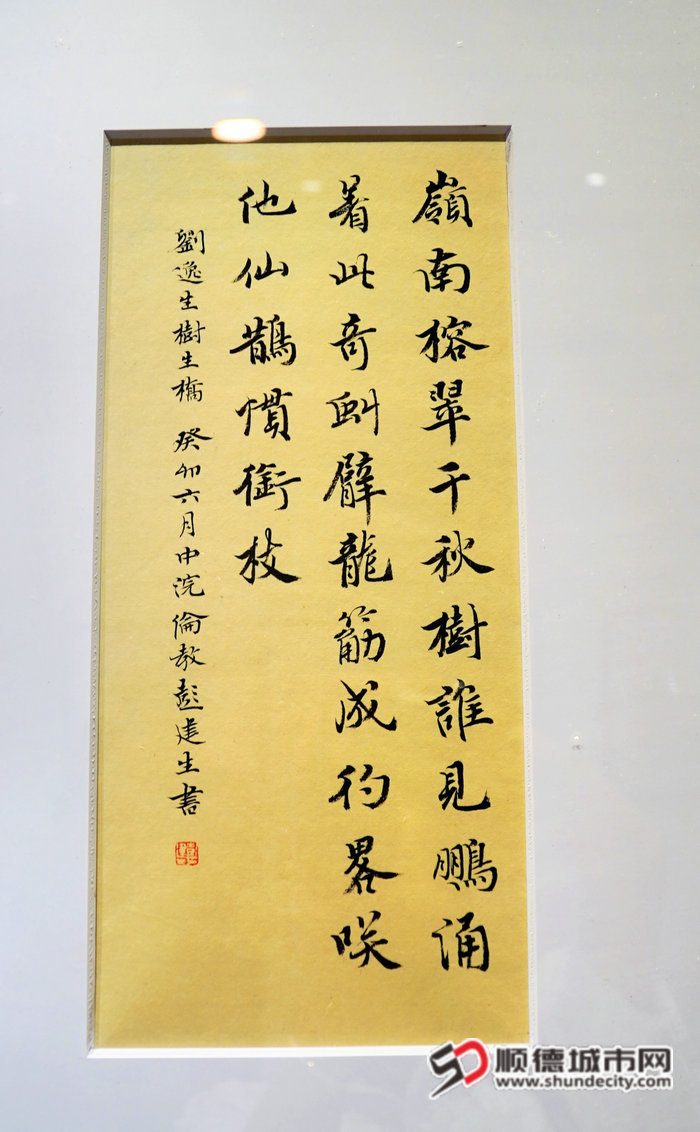 嶺南榕翠千秋樹誰見鵬誦
着此奇虯臂龍筋成彴畧咲
他仙鵲慣銜枝
劉逸生樹生橋 癸卯六月中浣倫教彭建生書
顺德城市网
www.shundecity.com